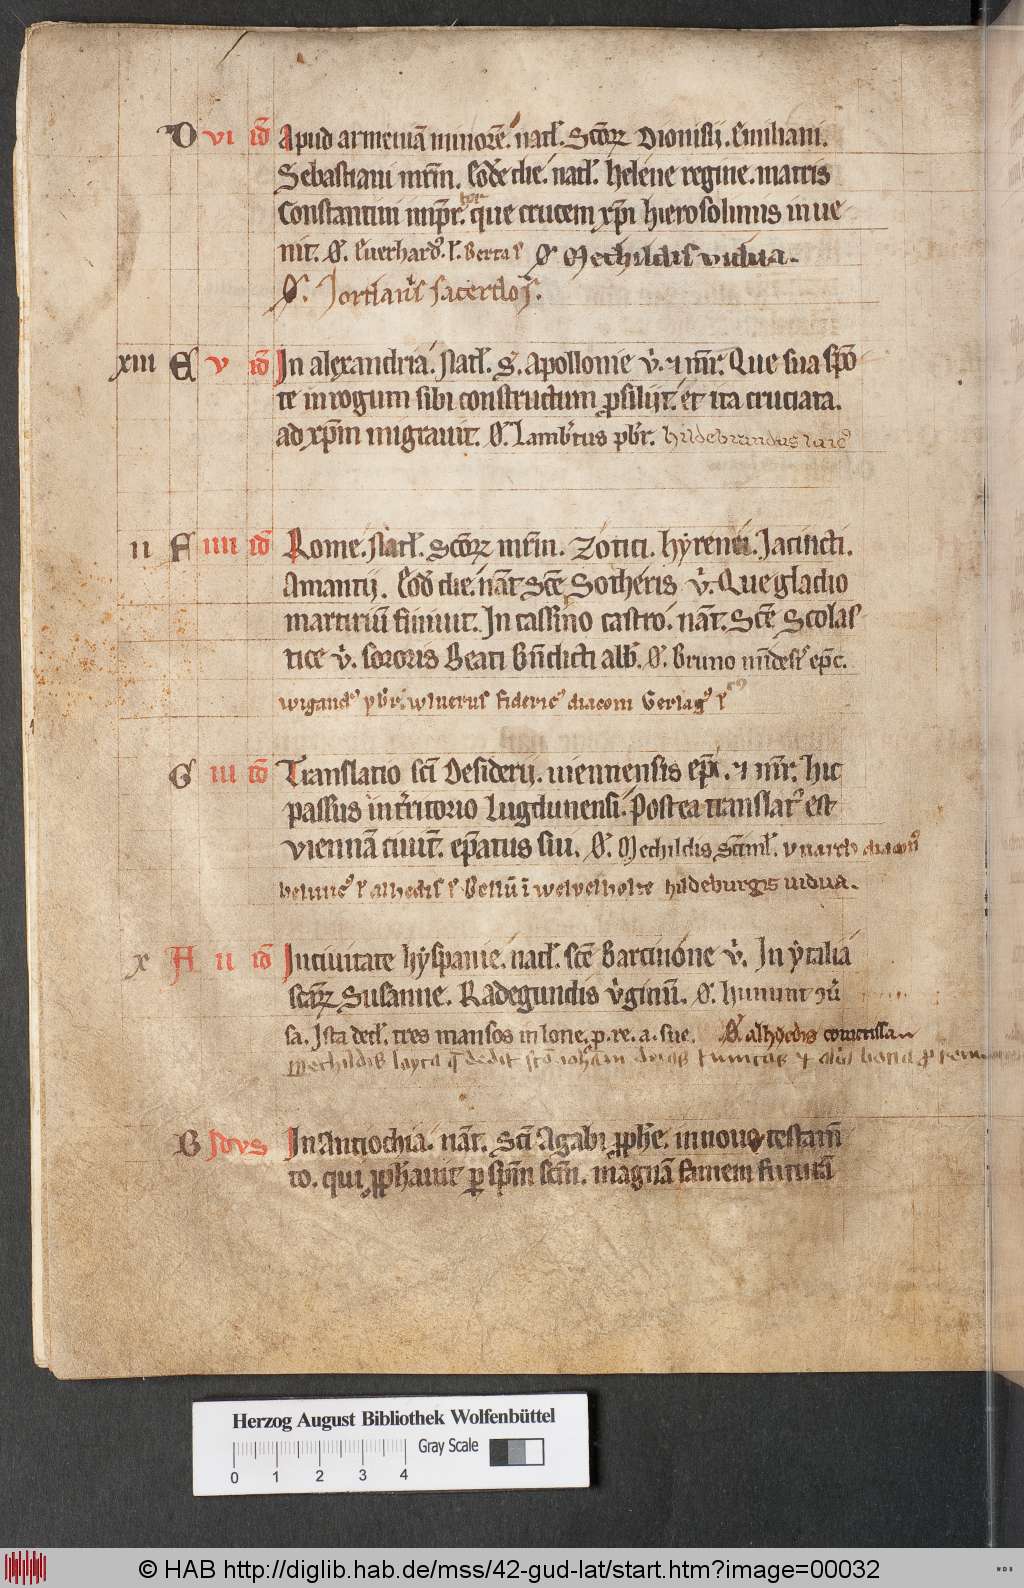 D vi id Apud armeniā minorē. natł. Scōꝝ Dionisii. Emiliani.
Sebastiani mr̄m. Eodē die. natł. helene regine. matris
Constantini imp̄r. que crucem xp̄i hierosolimis inue
nit. O. Euerhard⁹. l. Berta l O Mechildis vidua.
O. Jordanis sacerdos.
xiii E v id In alexandria. Natł. S. Apollonie v̄. ⁊ mr̄. Que sua spō
te in rogum sibi constructum ꝓsiliit. et ita cruciata.
ad xp̄m migrauit. O. Lamb̄tus pb̄r. hildebrandus laic⁹
ii F iiii id Rome. Natł. Scōꝝ mr̄m. Zotici. hyrenei. Jacincti.
Amantij. Eod̄ die. nāt Scē Sotheris v̄. Que gladio
martiriū finiuit. In cassino castro. nāt. Scē Scolas
tice v̄. sororis Beati Bn̄dicti alb̄. O. Bruno mīdesī ep̄c.
wigand⁹ pb̄r. fideric⁹ diaconi Gerlag⁹ l
G iii id Translatio sc̄i Desiderij. uiennensis ep̄i. ⁊ mr̄. hic
passus in t̄ritorio Lugdunensi. Postea translat⁹ est
viennā ciuit̄. ep̄atus sui. O. Mechildis
l alhedis l hildeburgis uidua.
x A ii id In ciuitate hyspanie. natł. scē Barcinone v̄. In ytalia
scāꝝ Susanne. Radegundis v̄ginū. O.
sa. Ista ded̄. tres mansos in lone. p. re. a. sue. O alheydis comitissa
Mechildis layca q̄ dedit
B Idvs In Antiochia. nāt. Scī Agabi ꝓph̄e. in nouo testam̄
to. qui ꝓph̄auit ꝑ sp̄m sc̄m. magnā famem futurā
Herzog August Bibliothek Wolfenbüttel
Gray Scale
0 1 2 3 4
© HAB http://diglib.hab.de/mss/42-gud-lat/start.htm?image=00032